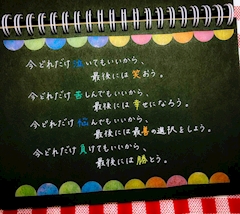 今どれだけ泣いてもいいから、
最後には笑おう。
今どれだけ苦しんでもいいから、
最後には幸せになろう。
今どれだけ悩んでもいいから、
最後には最善の選択をしよう。
今どれだけ負けてもいいから、
最後には勝とう。